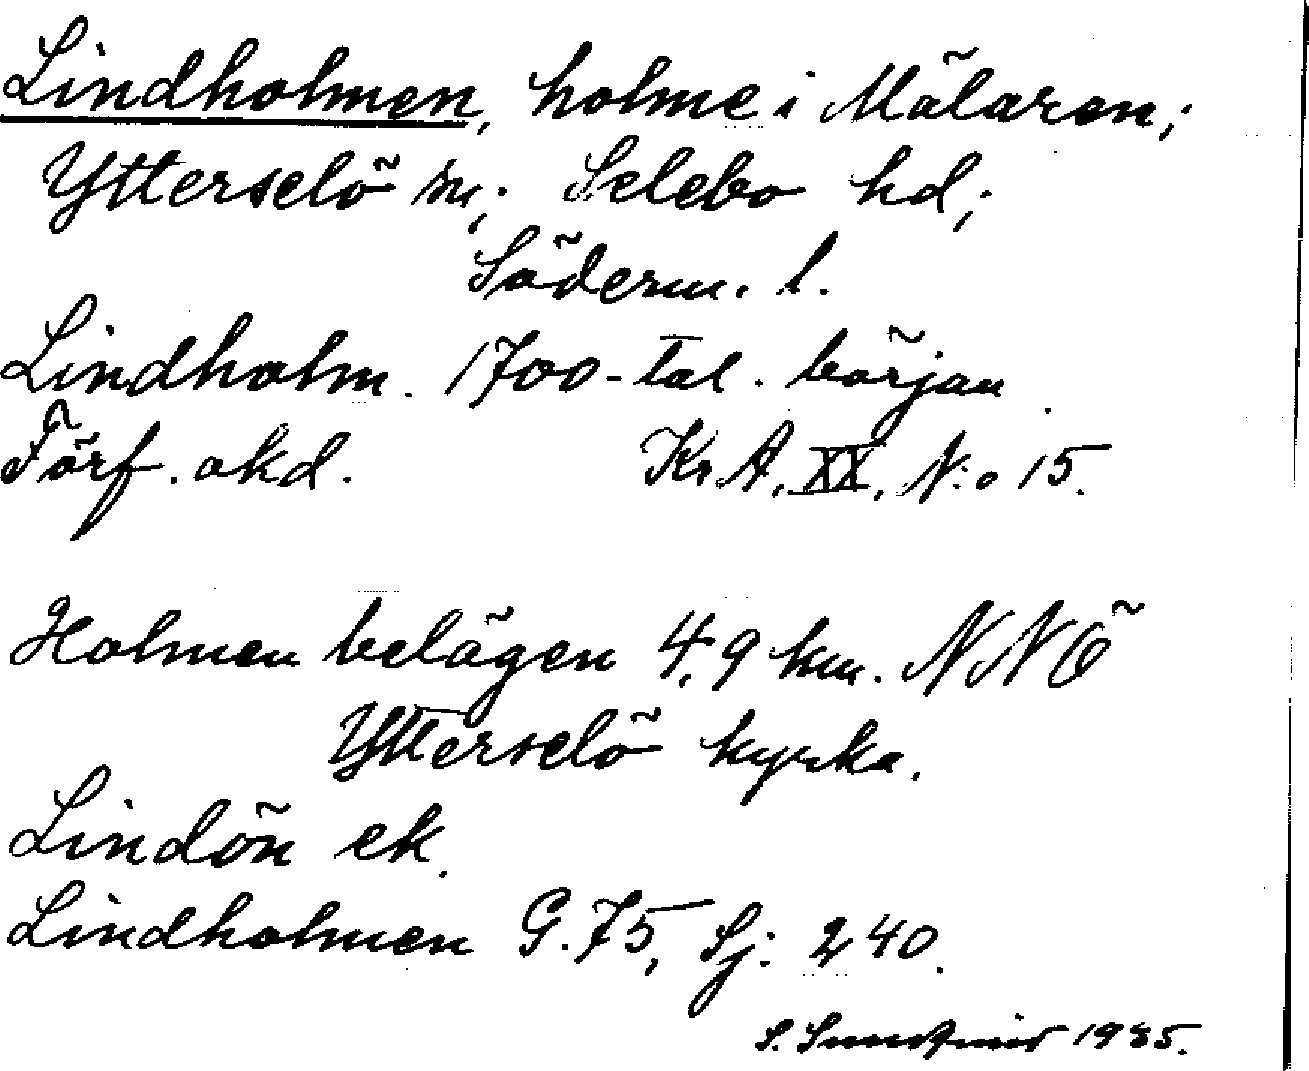 Lindholmen, holme i Mälaren;
Ytterselö sn; Selebo hd;
Söderm. l.
Lindholm. 1700-tal. början.
Förf. okd. Kr A, XX, N:o 15.
Holmen belägen 4,9 km. NNÖ
Ytterselö kyrka.
Lindön ek.
Lindholmen G. 75, Sj: 240.
S. 1935.